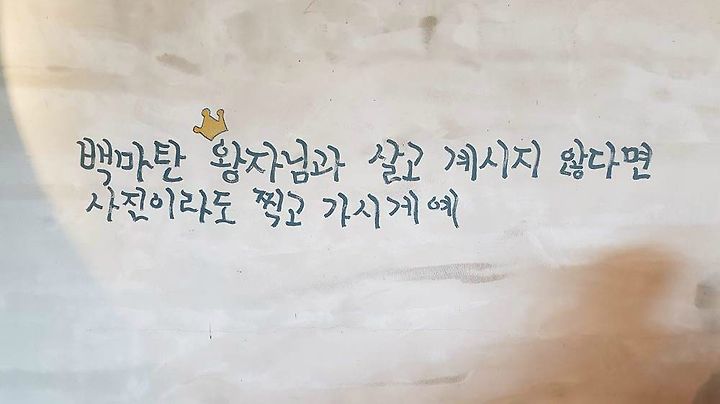 백마탄 왕자님과 살고 계시지 않다면
사진이라도 찍고 가시게예